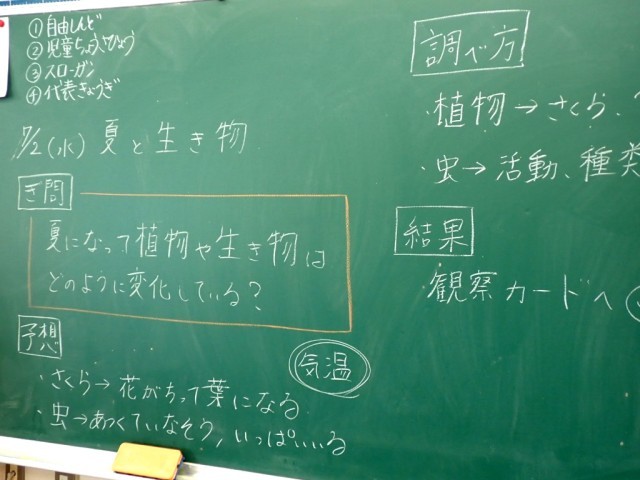 ①自由しんど
②児童ちょうさひょう
③スローガン
④代表きょうぎ
7/2(水) 夏と生き物
ぎ問
夏になって植物や生き物は
どのように変化している?
予想
気温
・さくら→花がちって葉になる
・虫→あつくていなそう,いっぱいいる
調べ方
・植物→さくら、
・虫→活動、種類
結果
・観察カードへ